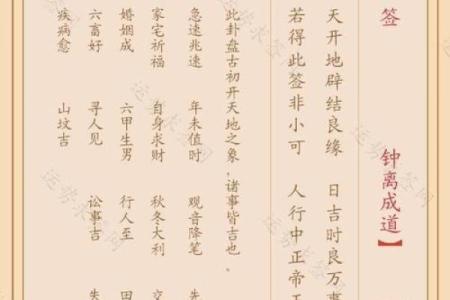 签 钟离成道】
天开地辟结良缘 日吉时良万事
若得此签非小可 人行中正帝王
此卦盘古初开天地之象,诸事皆吉也。
急速兆速 年未值时 观音降笔 先
家宅祈福 自身求财 秋冬大利 交
婚姻成 六甲生男 行人至 田
六畜好 寻人见 讼事吉 失
疾病愈 山坟吉
运势求签网
运势求签网
运势求签网
运势求签网